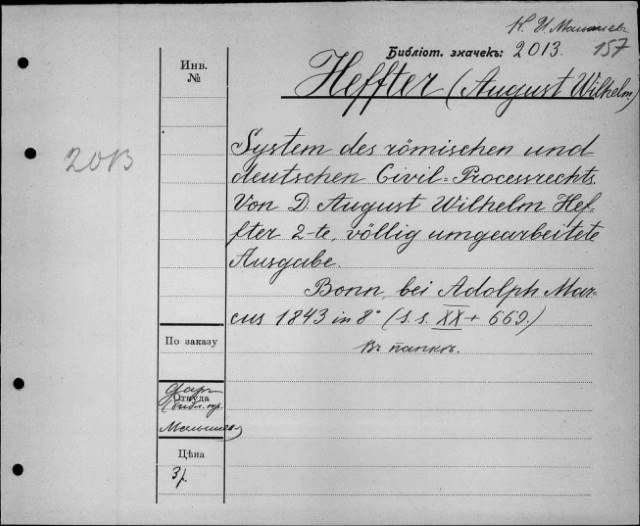 К. И. Малышев
157
Библіот. значекъ: 2013.
Инв.
№
Heffter (August Wilhelm)
2013
System des römischen und
deutschen Civil-Processrechts.
Von D. August Wilhelm Hef-
fter 2-te, völlig umgearbeitete
Ausgabe.
Bonn, bei Adolph Mar-
cus 1843 in 8° (S.S. XX + 669.)
Въ папкѣ.
По заказу
Откуда
Малышева
Цѣна
3 р.